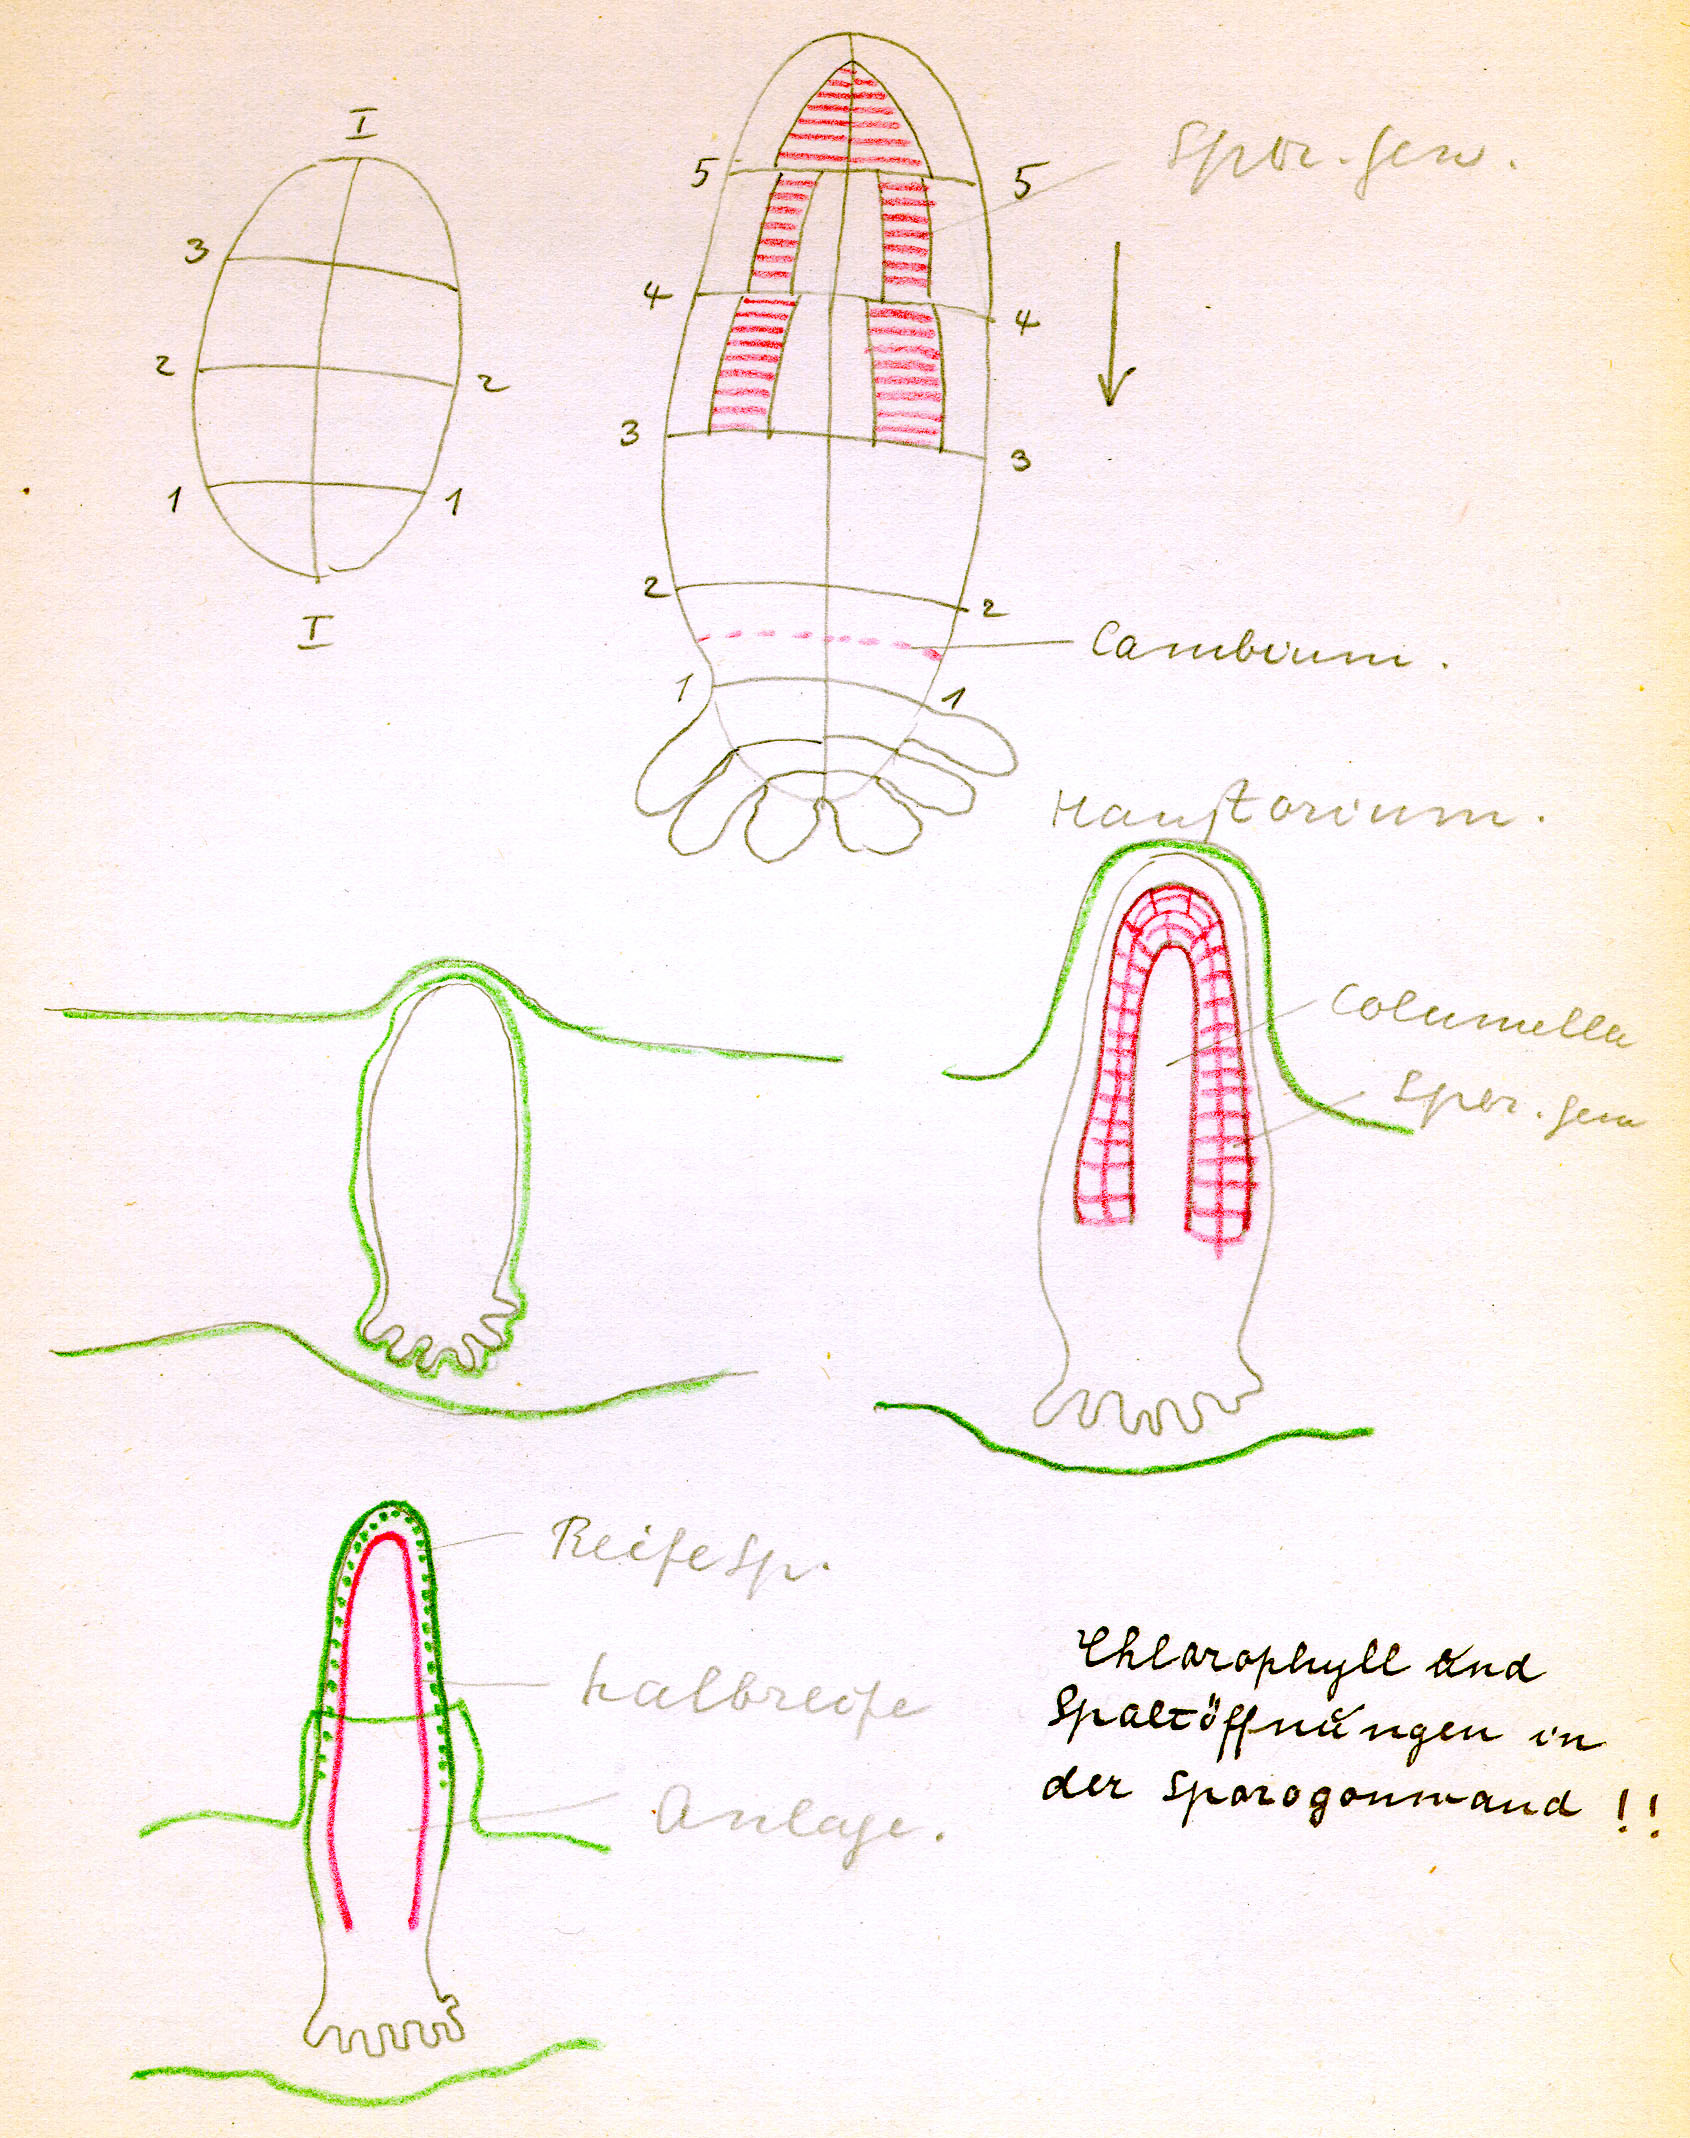 I
3
2 2
1 1
I
5 5
Spor. gew.
4 4
3 3
2 2
Cambium.
1 1
Haustorium.
Columella
Spor. gew
Reife Sp.
halbreife
Anlage.
Chlorophyll und
Spaltöffnungen in
der Sporogonwand !!